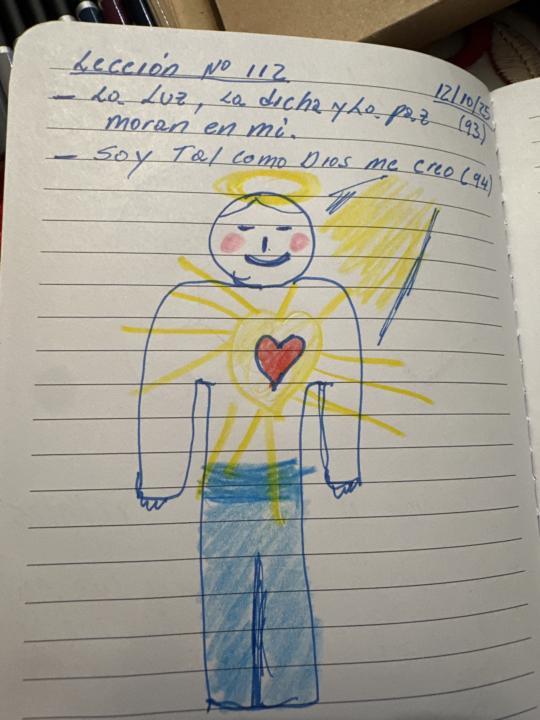 Lección Nº 112
12/10/25
- La Luz, La dicha y La paz (93)
moran en mi.
- Soy Tal como Dios me creo (94)